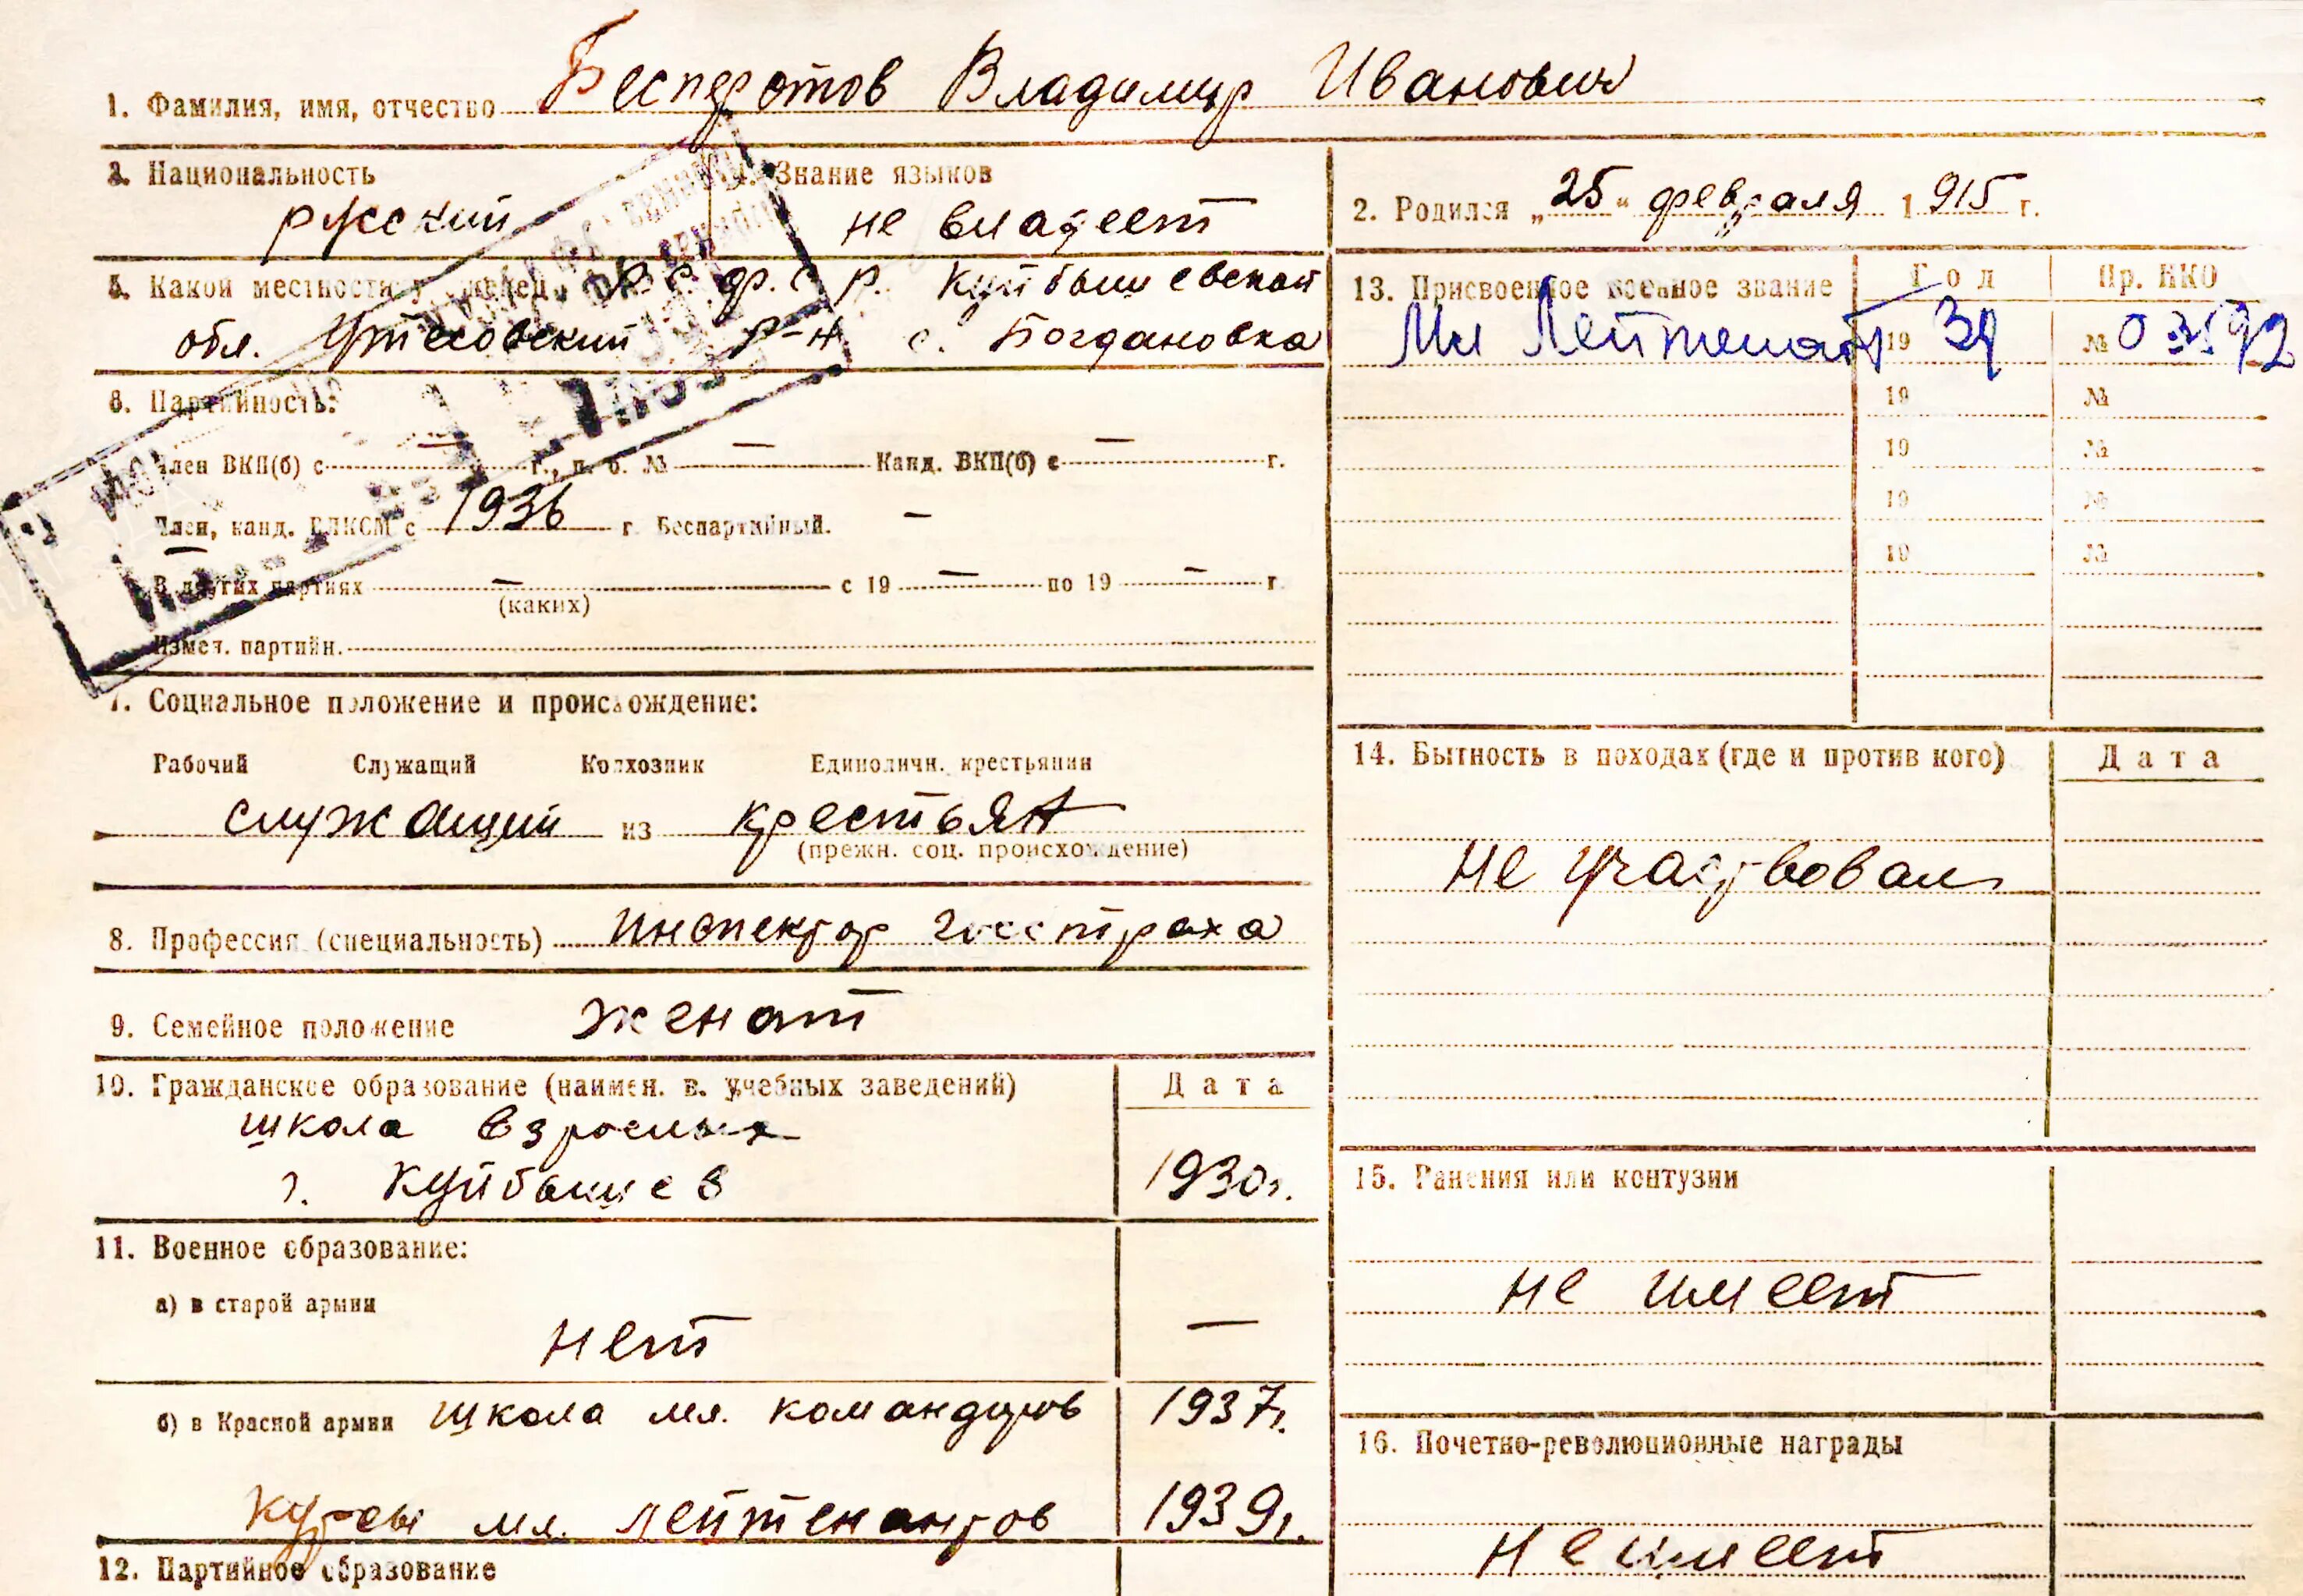 1. Фамилия, имя, отчество Бесперстов Владимир Иванович
3. Национальность
русский
4. Знание языков
не владеет
2. Родился „25“ февраля 1915 г.
5. Какой местности уроженец Р.С.Ф.С.Р. Куйбышевской
обл. р-н с. Богдановка
6. Партийность:
Член ВКП(б) с — г., п. б. № — Канд. ВКП(б) с — г.
Член, канд. ВЛКСМ с 1936 г. Беспартийный. —
В других партиях — с 19 — по 19 — г.
(каких)
Измен. партийн.
7. Социальное положение и происхождение:
Рабочий Служащий Колхозник Единоличн. крестьянин
служащий из крестьян
(прежн. соц. происхождение)
8. Профессия (специальность) инспектор госстраха
9. Семейное положение женат
10. Гражданское образование (наимен. в. учебных заведений) Дата
школа взрослых
г. Куйбышев 1930г.
11. Военное образование:
а) в старой армии
нет —
б) в Красной армии школа мл. командиров 1937г.
Курсы мл. лейтенантов 1939г.
12. Партийное образование
13. Присвоенное военное звание Год Пр. НКО
Мл Лейтенант 1939 № 03592
19 №
19 №
19 №
19 №
14. Бытность в походах (где и против кого) Дата
не участвовал
15. Ранения или контузии
не имеет
16. Почетно-революционные награды
не имеет